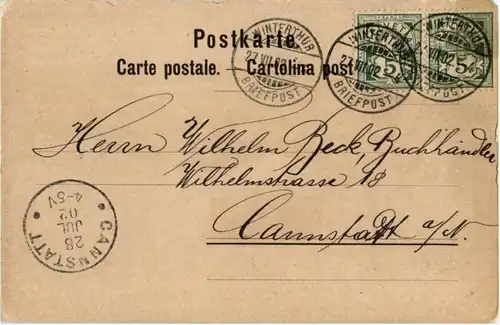 Postkarte.
Carte postale. — Cartolina post
WINTERTHUR
BRIEFPOST
WINTERTHUR
27.VII.02
BRIEFPOST
5
WINTERTHUR
VII.02
BRIEFPOST
5
Herrn Wilhelm Beck, Buchhändler
Wilhelmstrasse 18
Cannstatt a/N.
CANNSTATT
28
JUL
02
4-5V